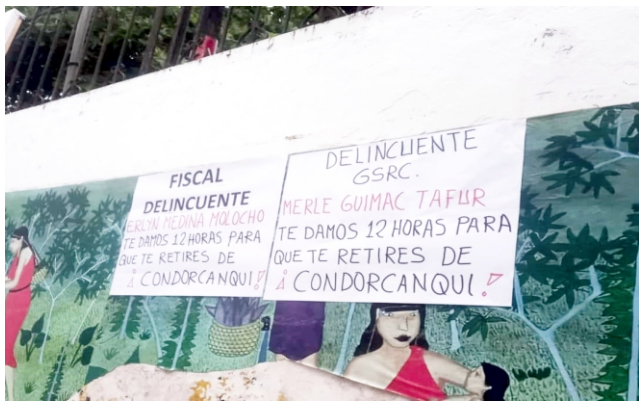 FISCAL
DELINCUENTE
ERLYN MEDINA MOLOCHO
TE DAMOS 12 HORAS PARA
QUE TE RETIRES DE
¡ CONDORCANQUI !
DELINCUENTE
GSRC.
MERLE GUIMAC TAFUR
TE DAMOS 12 HORAS PARA
QUE TE RETIRES DE
¡ CONDORCANQUI !